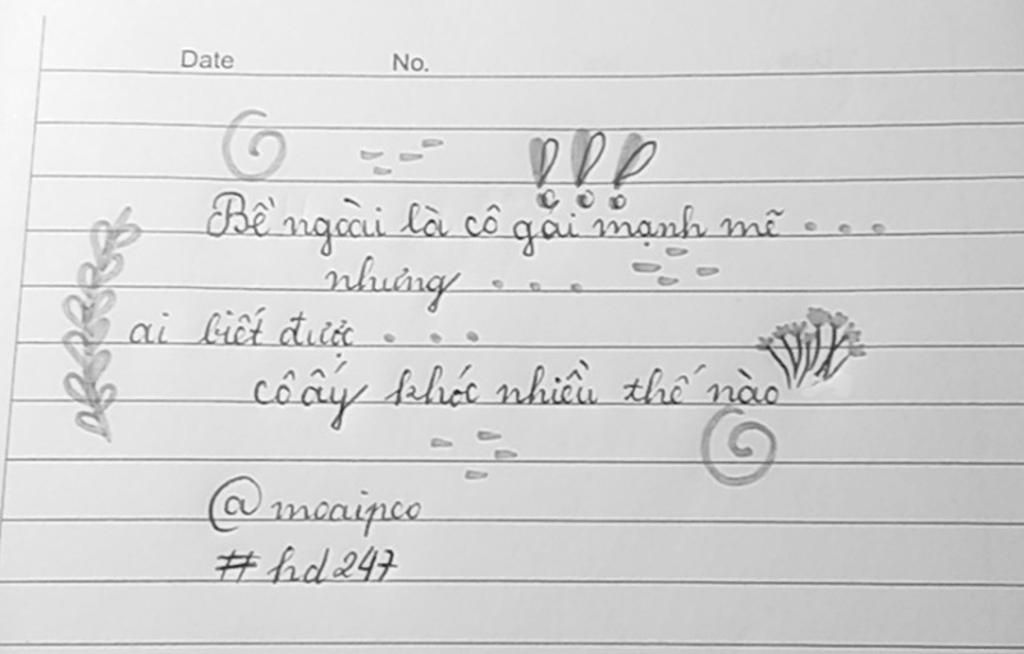 Date No.
Bề ngoài là cô gái mạnh mẽ . . .
nhưng . . .
ai biết được . . .
cô ấy khóc nhiều thế nào
@moaipco
#hd247